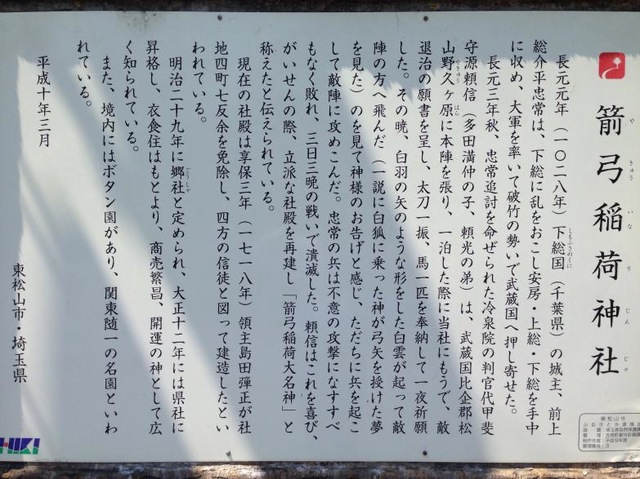 箭弓稲荷神社
やきゅういなりじんじゃ
長元元年（一〇二八年）下総国（千葉県）の城主、前上
しもうさのくに
総介平忠常は、下総に乱をおこし安房・上総・下総を手中
に収め、大軍を率いて破竹の勢いで武蔵国へ押し寄せた。
長元三年秋、忠常追討を命ぜられた冷泉院の判官代甲斐
守源頼信（多田満仲の子、頼光の弟）は、武蔵国比企郡松
山野久ヶ原に本陣を張り、一泊した際に当社にもうで、敵
退治の願書を呈し、太刀一振、馬一匹を奉納して一夜祈願
した。その暁、白羽の矢のような形をした白雲が起って敵
陣の方へ飛んだ（一説に白狐に乗った神が弓矢を授けた夢
を見た）のを見て神様のお告げと感じ、ただちに兵を起こ
して敵陣に攻めこんだ。忠常の兵は不意の攻撃になすすべ
もなく敗れ、三日三晩の戦いで潰滅した。頼信はこれを喜び、
がいせんの際、立派な社殿を再建し「箭弓稲荷大名神」と
称えたと伝えられている。
現在の社殿は享保三年（一七一八年）領主島田弾正が社
地四町七反余を免除し、四方の信徒と図って建造したとい
われている。
明治二十九年に郷社と定められ、大正十二年には県社に
ごうしゃ
昇格し、衣食住はもとより、商売繁昌、開運の神として広
く知られている。
また、境内にはボタン園があり、関東随一の名園といわ
れている。
平成十年三月
東松山市・埼玉県
HIKI
東松山市